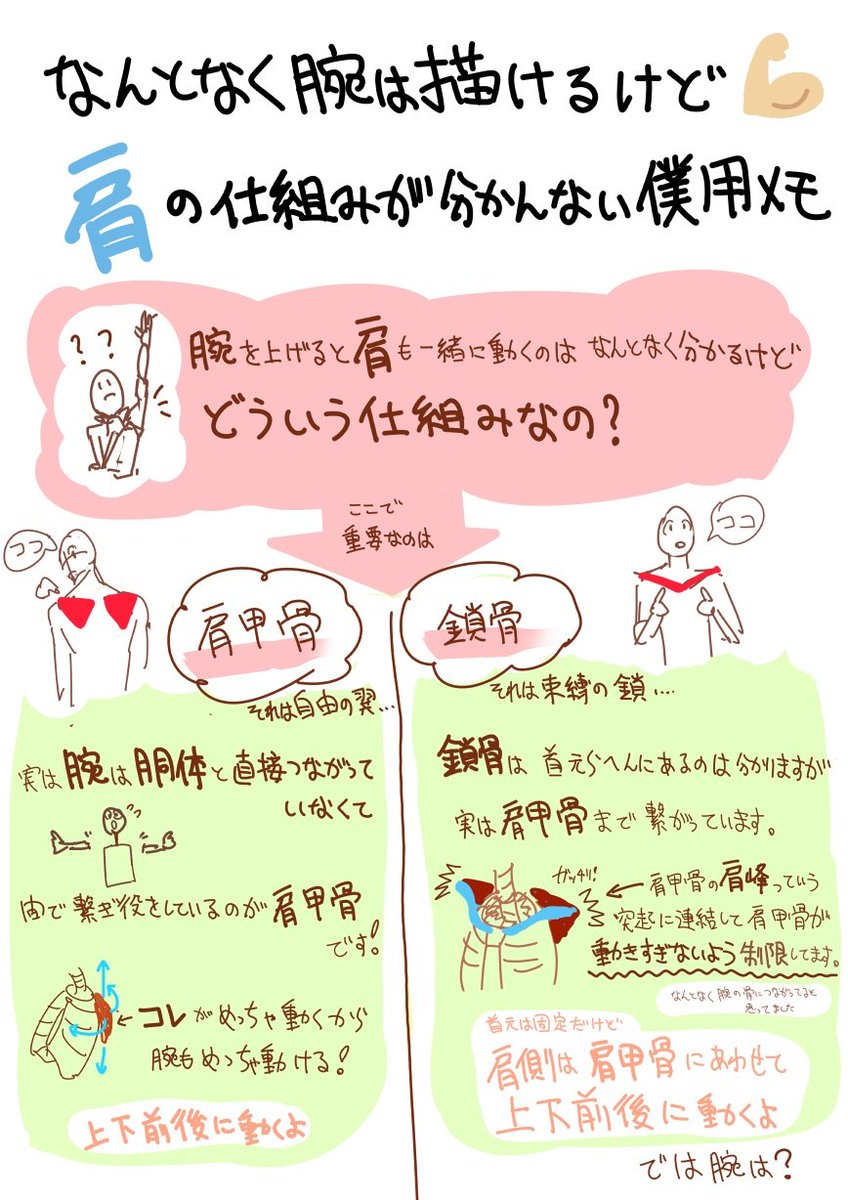 なんとなく腕は描けるけど
肩の仕組みが分かんない僕用メモ
??
腕を上げると肩も一緒に動くのは なんとなく分かるけど
どういう仕組みなの?
ここで
重要なのは
ココ
肩甲骨
それは自由の翼...
実は腕は胴体と直接つながって
いなくて
間で繋ぎ役をしているのが肩甲骨
です!
←コレがめっちゃ動くから
腕もめっちゃ動ける!
上下前後に動くよ
ココ
鎖骨
それは束縛の鎖....
鎖骨は 首元らへんにあるのは分かりますが
実は肩甲骨まで繋がっています。
ガッチリ!
←肩甲骨の肩峰っていう
突起に連結して肩甲骨が
動きすぎないよう制限してます。
なんとなく腕の骨につながってると
思ってました
首元は固定だけど
肩側は肩甲骨にあわせて
上下前後に動くよ
では腕は?